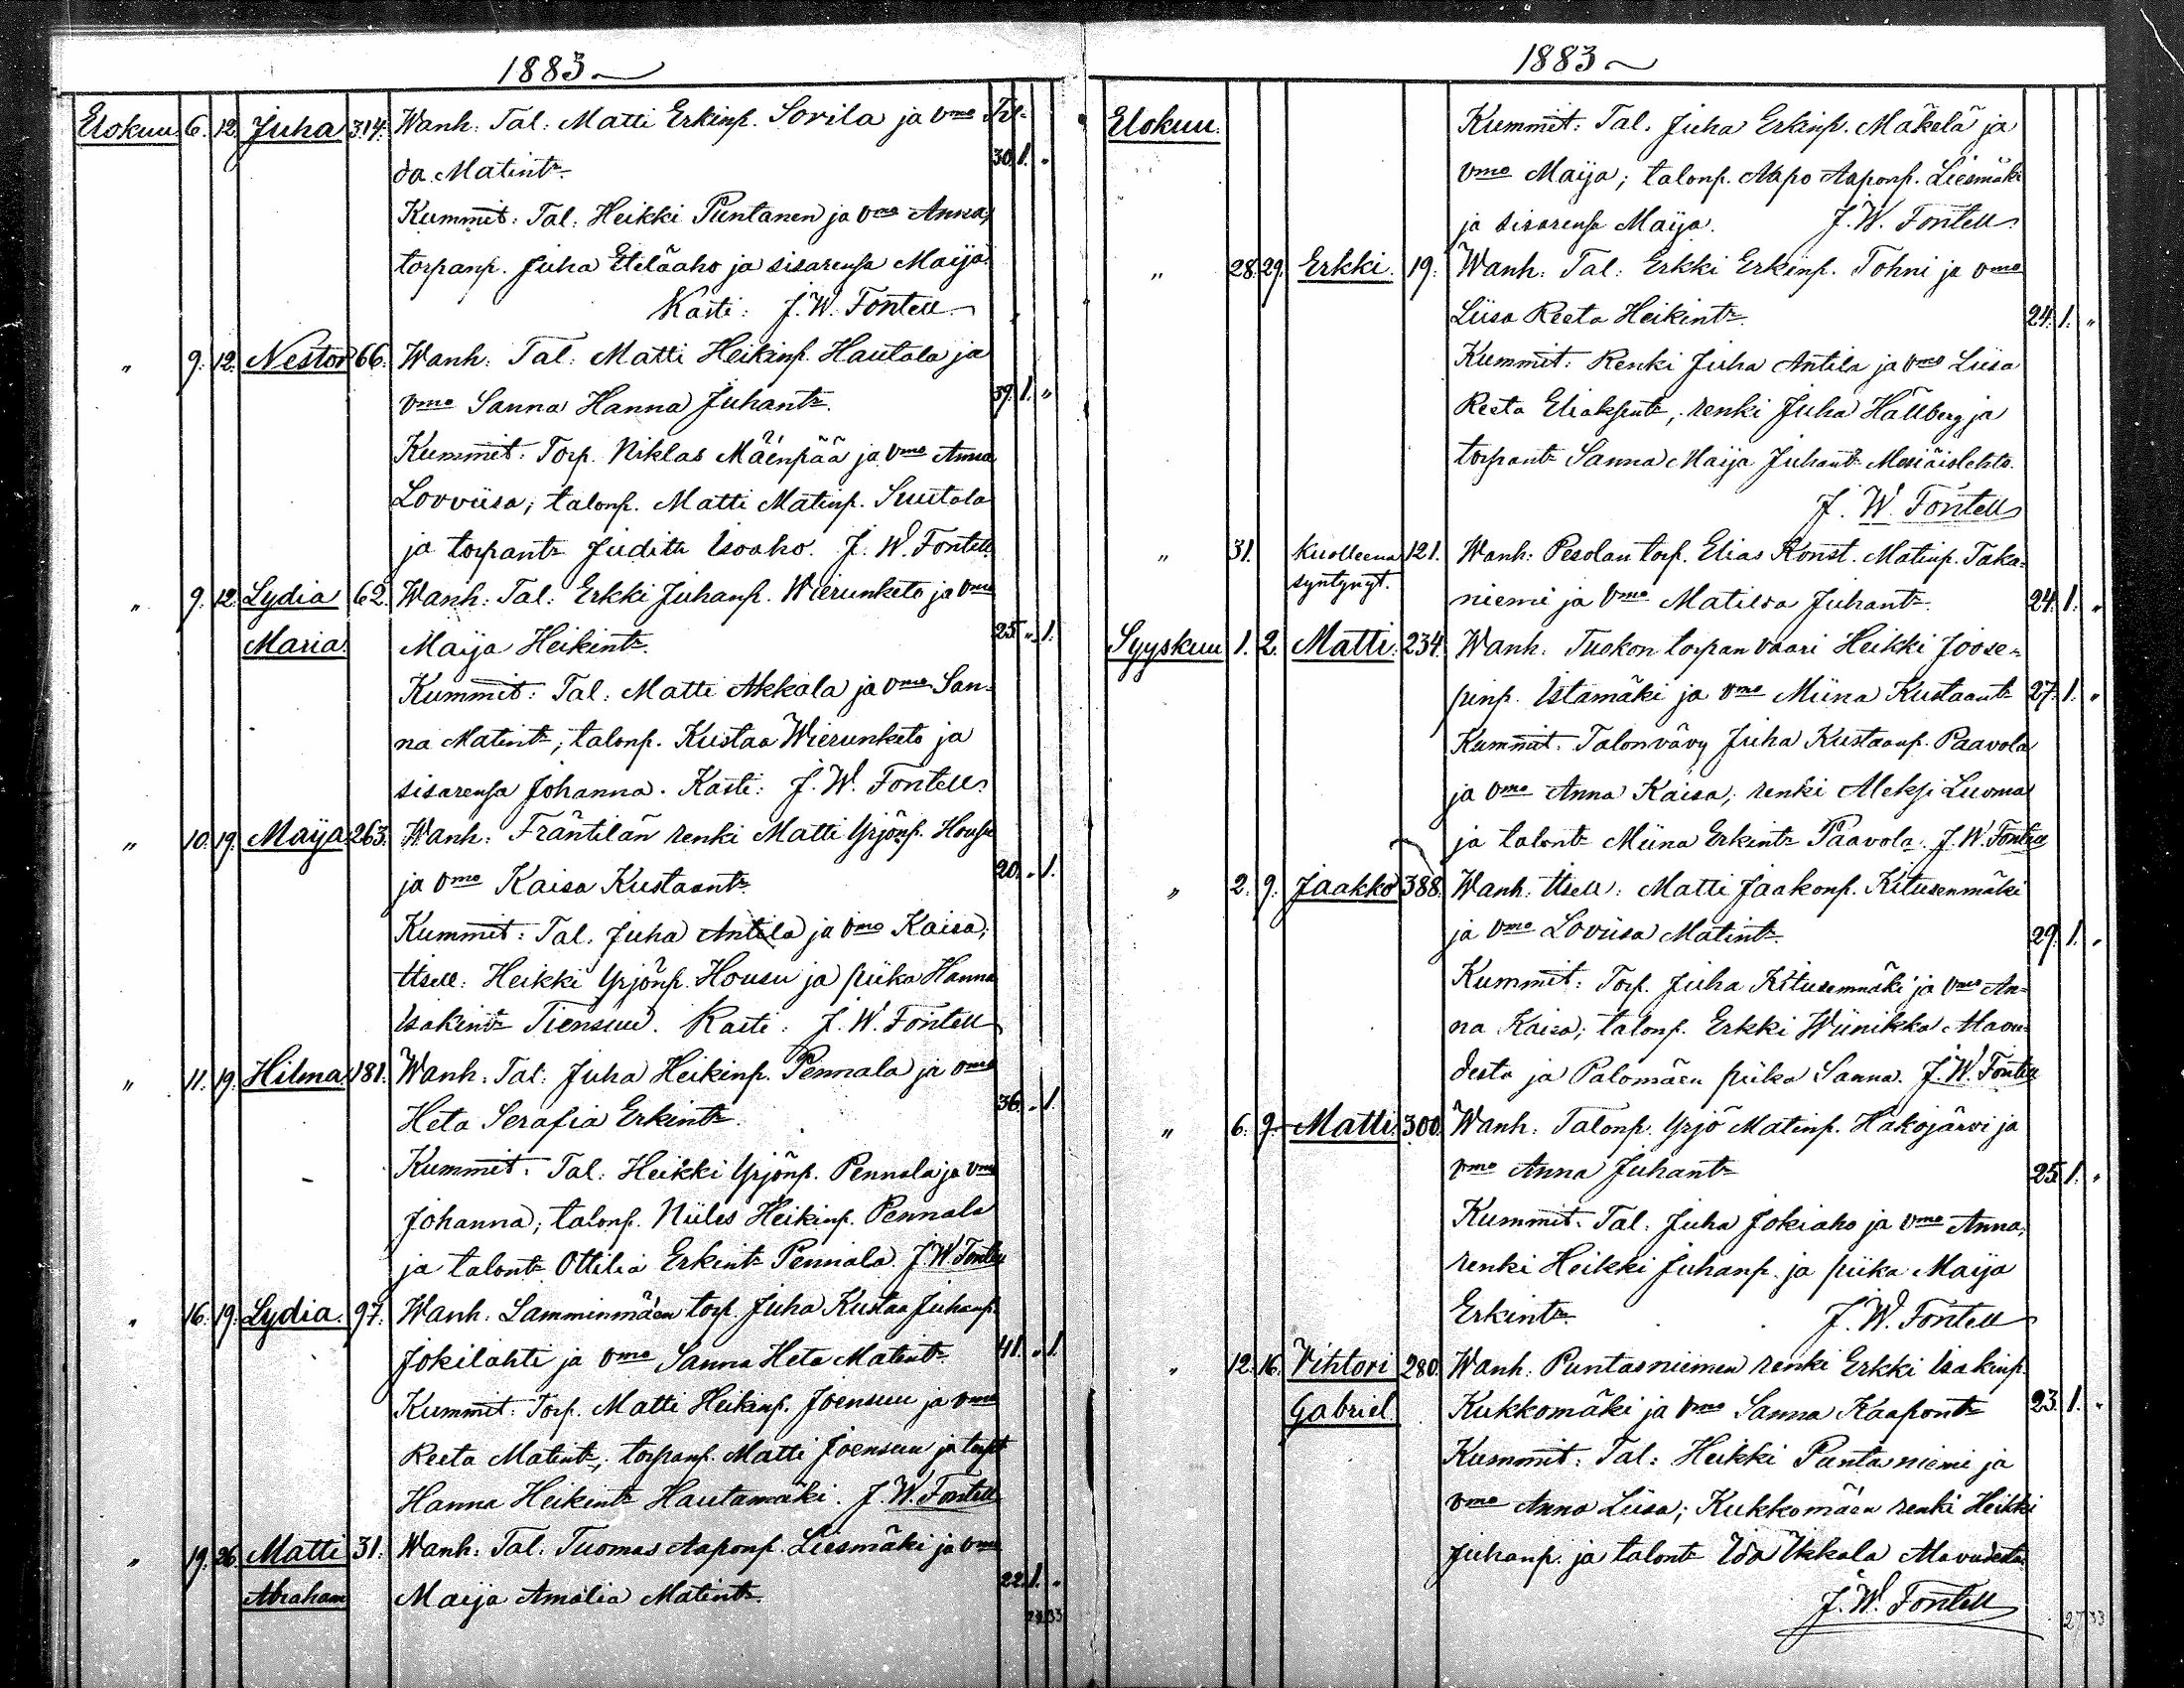 1883
Elokuu 6. 12. Juha 314. Wanh: Tal: Matti Erkinp. Sorila ja vmo Fil-
da Matintr. 30. 1. "
Kummit: Tal: Heikki Puntanen ja vmo Anna,
torpanp. Juha Eteläaho ja sisarensa Maija.
Kasti: J. W. Fontell
" 9. 12. Nestor 66. Wanh: Tal: Matti Heikinp. Hautala ja
vmo Sanna Hanna Juhantr. 39. 1. "
Kummit: Torp. Niklas Mäenpää ja vmo Anna
Lovviisa; talonp. Matti Matinp. Suutala
ja torpantr Judith Isoaho. J. W. Fontell
" 9. 12. Lydia 62. Wanh: Tal: Erkki Juhanp. Wierunketo ja vmo
Maria. Maija Heikintr. 25. " 1.
Kummit: Tal: Matti Akkala ja vmo San-
na Matintr; talonp. Kustaa Wierunketo ja
sisarensa Johanna. Kasti: J. W. Fontell
" 10. 19. Maija 263. Wanh: Fräntilän renki Matti Yrjönp. Housu
ja vmo Kaisa Kustaantr. 20. " 1.
Kummit: Tal. Juha Antila ja vmo Kaisa;
itsell: Heikki Yrjönp. Housu ja piika Hanna
Isakintr Tiensuu. Kasti: J. W. Fontell
" 11. 19. Hilma 181. Wanh: Tal: Juha Heikinp. Pennala ja vmo
Heta Serafia Erkintr. 36. " 1.
Kummit: Tal: Heikki Yrjönp. Pennala ja vmo
Johanna; talonp. Niiles Heikinp. Pennala
ja talontr Ottilia Erkintr Pennala. J. W. Fontell
" 16. 19. Lydia. 97. Wanh: Lamminmäen torp. Juha Kustaa Juhanp.
Jokilahti ja vmo Sanna Heta Matintr. 41. " 1.
Kummit: Torp. Matti Heikinp. Joensuu ja vmo
Reeta Matintr; torpanp. Matti Joensuu ja torpt
Hanna Heikintr Hautamäki. J. W. Fontell
" 19. 26. Matti 31. Wanh: Tal: Tuomas Aaponp. Liesmäki ja vmo
Abraham Maija Amalia Matintr. 22. 1. "
27 33
1883
Elokuu. Kummit: Tal. Juha Erkinp. Mäkelä ja
vmo Maija; talonp. Aapo Aaponp. Liesmäki
ja sisarensa Maija. J. W. Fontell
" 28. 29. Erkki. 19. Wanh: Tal: Erkki Erkinp. Tohni ja vmo
Liisa Reeta Heikintr. 24. 1. "
Kummit: Renki Juha Antila ja vmo Liisa
Reeta Eliaksentr; renki Juha Hällberg ja
torpantr Sanna Maija Juhantr Mesiäislehto.
J. W. Fontell
" 31. Kuolleena 121. Wanh: Pesolan torp. Elias Konst. Matinp. Taka-
syntynyt. niemi ja vmo Matilda Juhantr. 24. 1. "
Syyskuu 1. 2. Matti. 234. Wanh: Tuokon torpan vaari Heikki Joose-
pinp. Istamäki ja vmo Miina Kustaantr 27. 1. "
Kummit: Talonvävy Juha Kustaanp. Paavola
ja vmo Anna Kaisa; renki Aleksi Luoma
ja talontr Miina Erkintr Paavola. J. W. Fontell
" 2. 9. Jaakko 388. Wanh: Itsell: Matti Jaakonp. Kitusenmäki
ja vmo Loviisa Matintr. 29. 1. "
Kummit: Torp. Juha Kitusenmäki ja vmo An-
na Kaisa; talonp. Erkki Wiinikka Alavu-
desta ja Palomäen piika Sanna. J. W. Fontell
" 6. 9. Matti. 300. Wanh: Talonp. Yrjö Matinp. Hakojärvi ja
vmo Anna Juhantr 25. 1. "
Kummit: Tal: Juha Jokiaho ja vmo Anna,
renki Heikki Juhanp. ja piika Maija
Erkintr. J. W. Fontell
" 12. 16. Vihtori 280. Wanh: Puntasniemen renki Erkki Isakinp.
Gabriel Kukkomäki ja vmo Sanna Kaapontr 23. 1. "
Kummit: Tal: Heikki Puntasniemi ja
vmo Anna Liisa; Kukkomäen renki Heikki
Juhanp. ja talontr Ida Ukkala Alavudesta.
J. W. Fontell
27 33